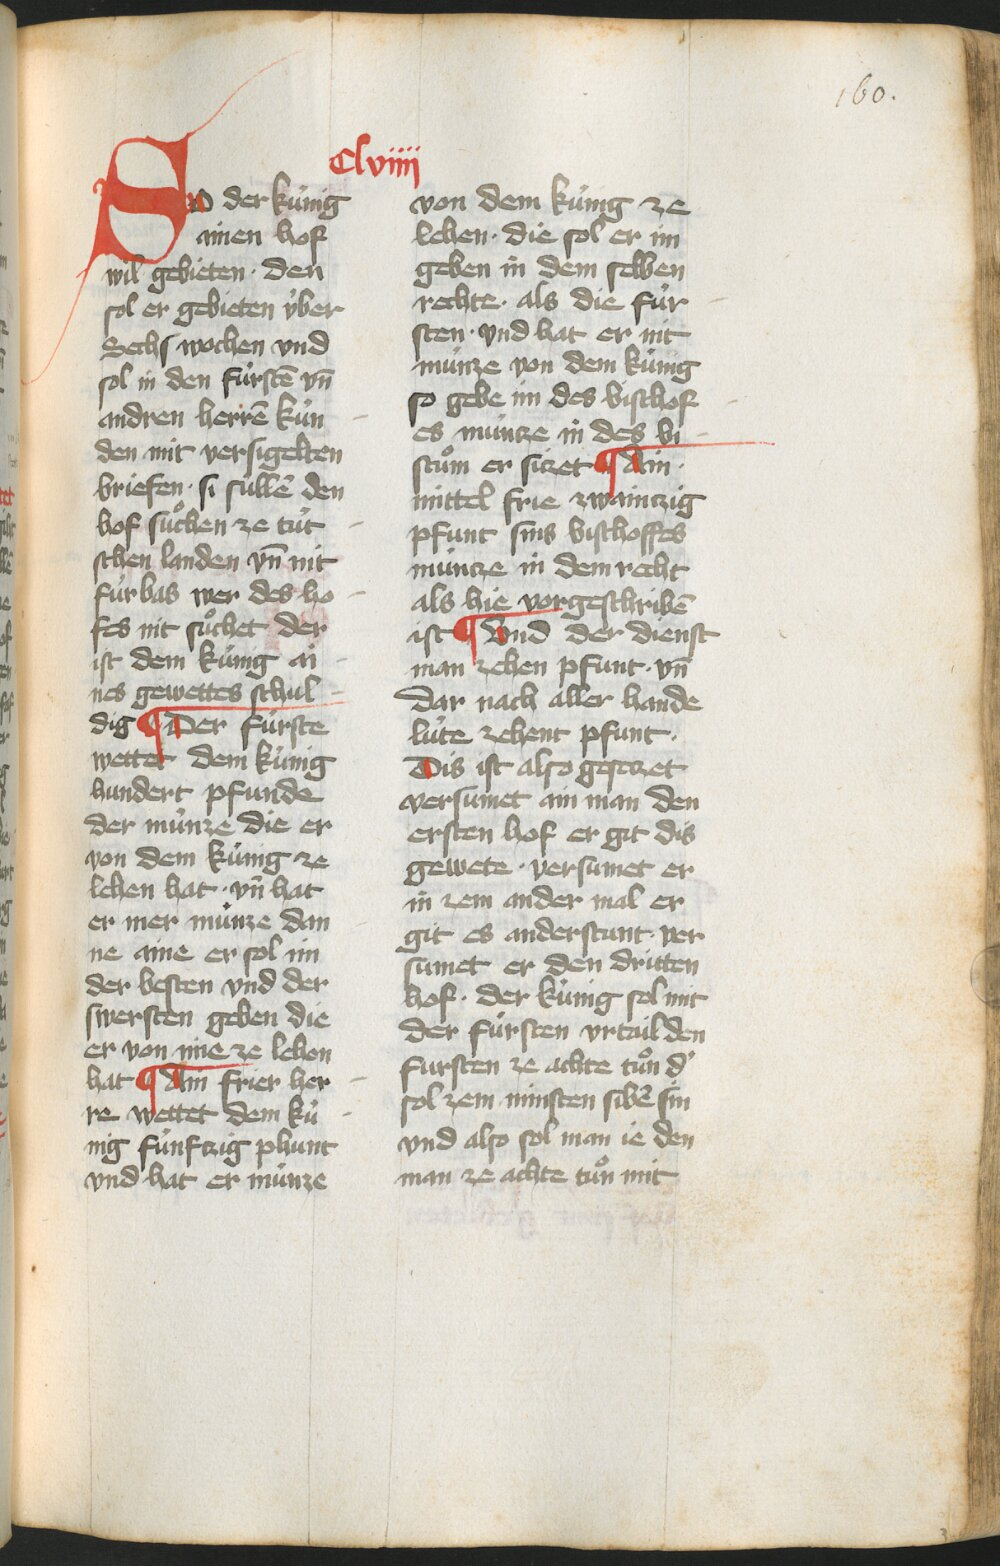 160.
Clviiii
So der kúnig
ainen hof
wil gebieten · den
sol er gebieten vͥber
Sechs wochen vnd
sol in den fúrstē vn̄
andren herrē kún
den mit versigelten
briefen · si súllē den
hof suͦchen ze tút
schen landen vn̄ nit
fúrbas wer des ho
fes nit suͦchet der
ist dem kúnig ai
nes gewettes schul
dig ¶ Der fúrste
wettet dem kúnig
hundert pfunde
der múnze die er
von dem kúnig ze
lehen hat · vn̄ hat
er mer múnze dan
ne aine er sol im
der besten vnd der
swersten geben die
er von ime ze lehen
hat ¶ Ain frier her
re wettet dem kú
nig fúnftzig phunt
vnd hat er múnze
von dem kúnig ze
lehen · die sol er im
geben in dem selben
rechte · als die fúr
sten · vnd hat er nit
múnze von dem kúnig
so gebe im des bischof
es múntze in des bi
stuͦm er sitzet ¶ Ain ·
mittel frie zwaintzig
pfunt sins bischoffes
múntze in dem recht
als hie vorgeschribē
ist ¶ Vnd der dienst
man zehen pfunt · vn̄
Dar nach aller hande
lúte zehent pfunt ·
Dis ist also gesetzet
versumet ain man den
ersten hof er git dis
gewete · versumet er
in zem ander mal er
git es anderstunt · ver
sumet er den dritten
hof · der kúnig sol mit
der fúrsten vrtail den
fursten ze achte tuͦn d'
sol zem minsten sibē sin
vnd also sol man ie den
man ze achte tuͦn mit